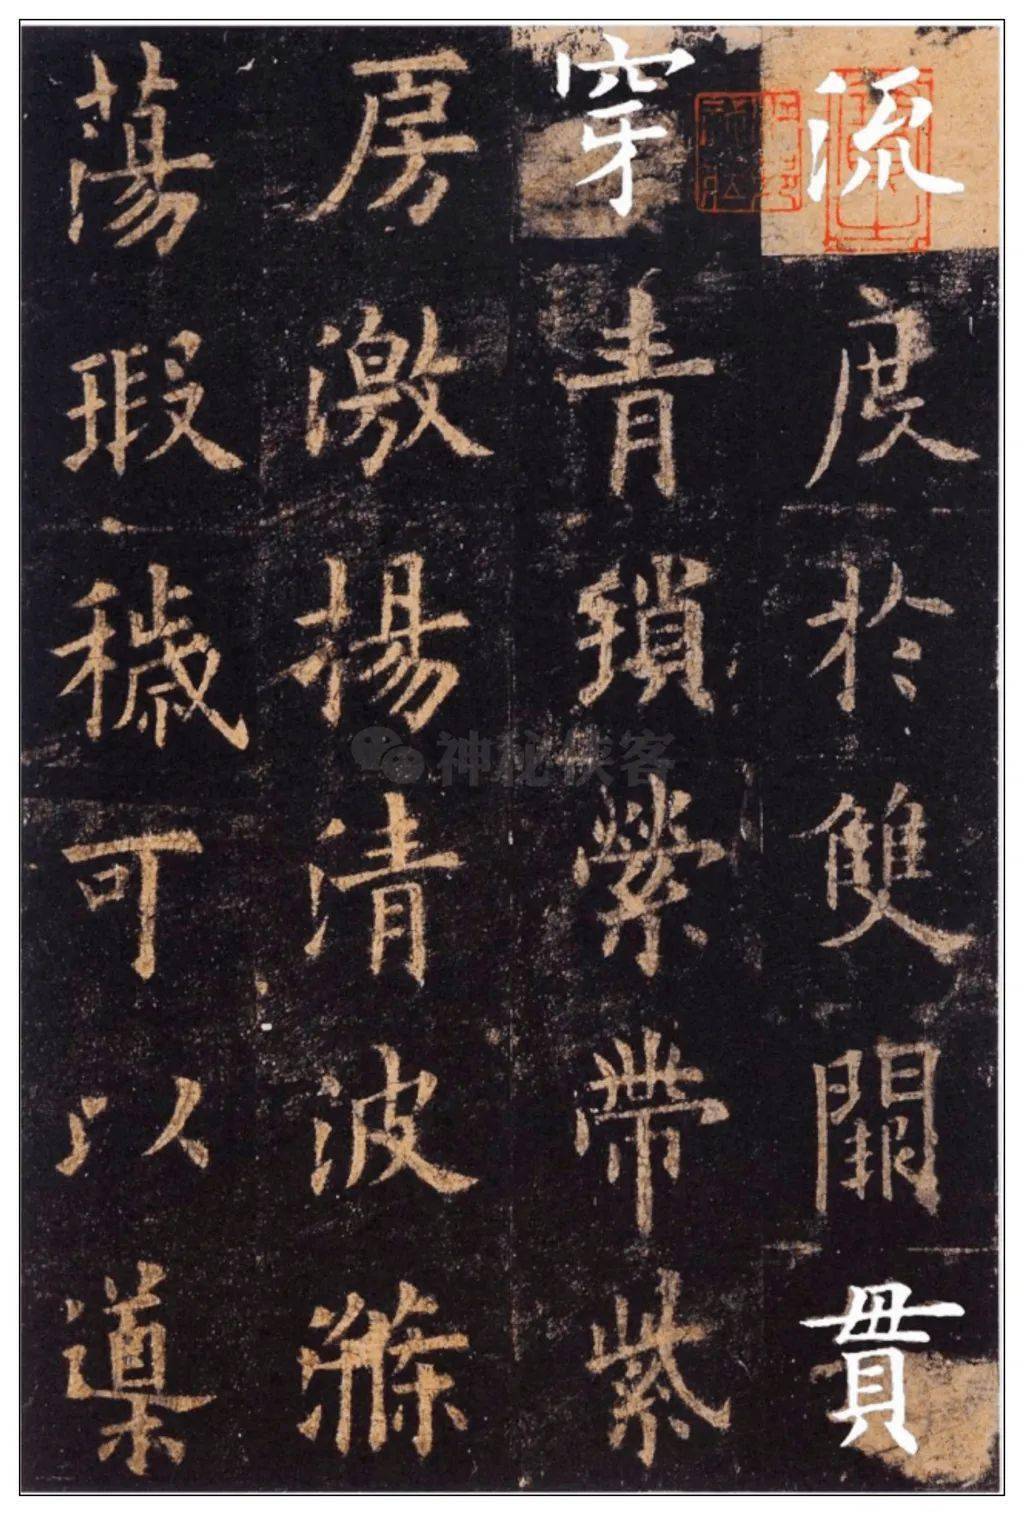 流度於雙闕貫
穿青鎖縈帶紫
房激揚清波滌
蕩瑕穢可以導
神秘侠客